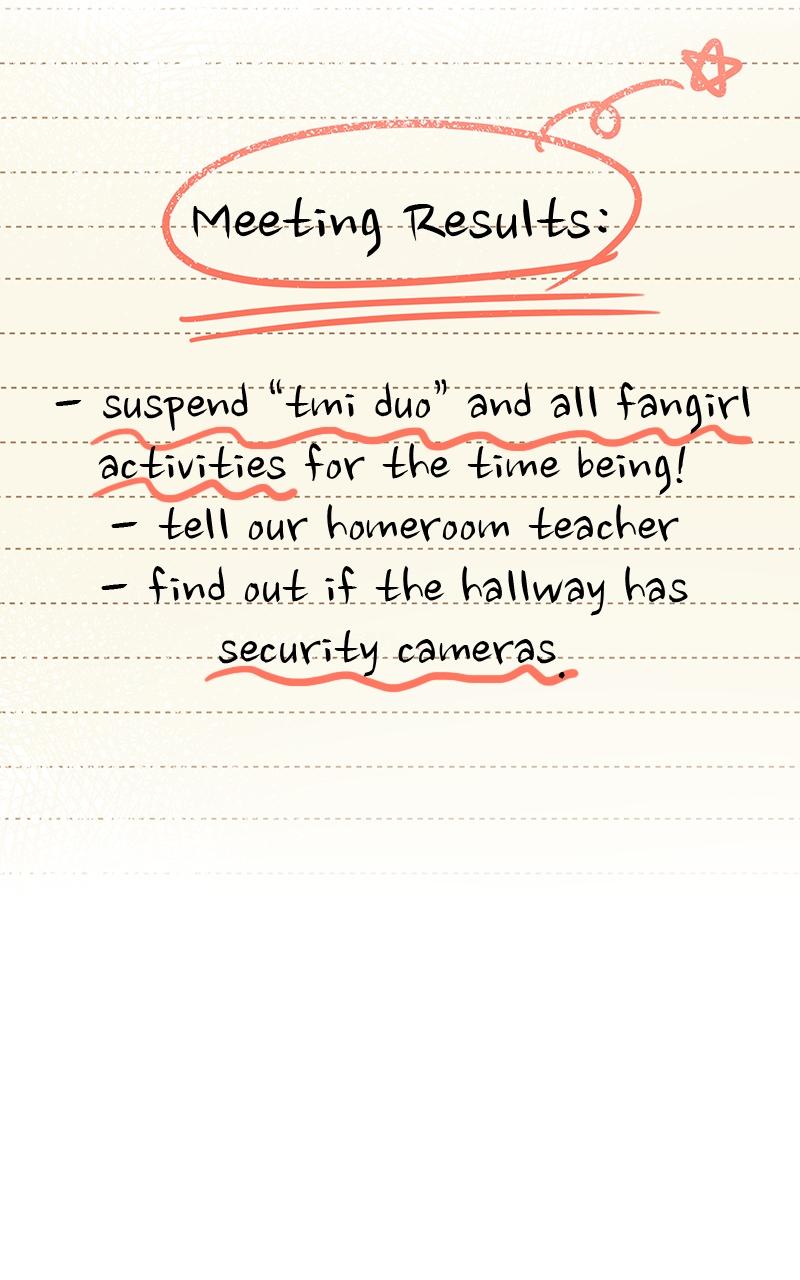 Meeting Results:
- suspend "tmi duo" and all fangirl
activities for the time being!
- tell our homeroom teacher
- find out if the hallway has
security cameras.